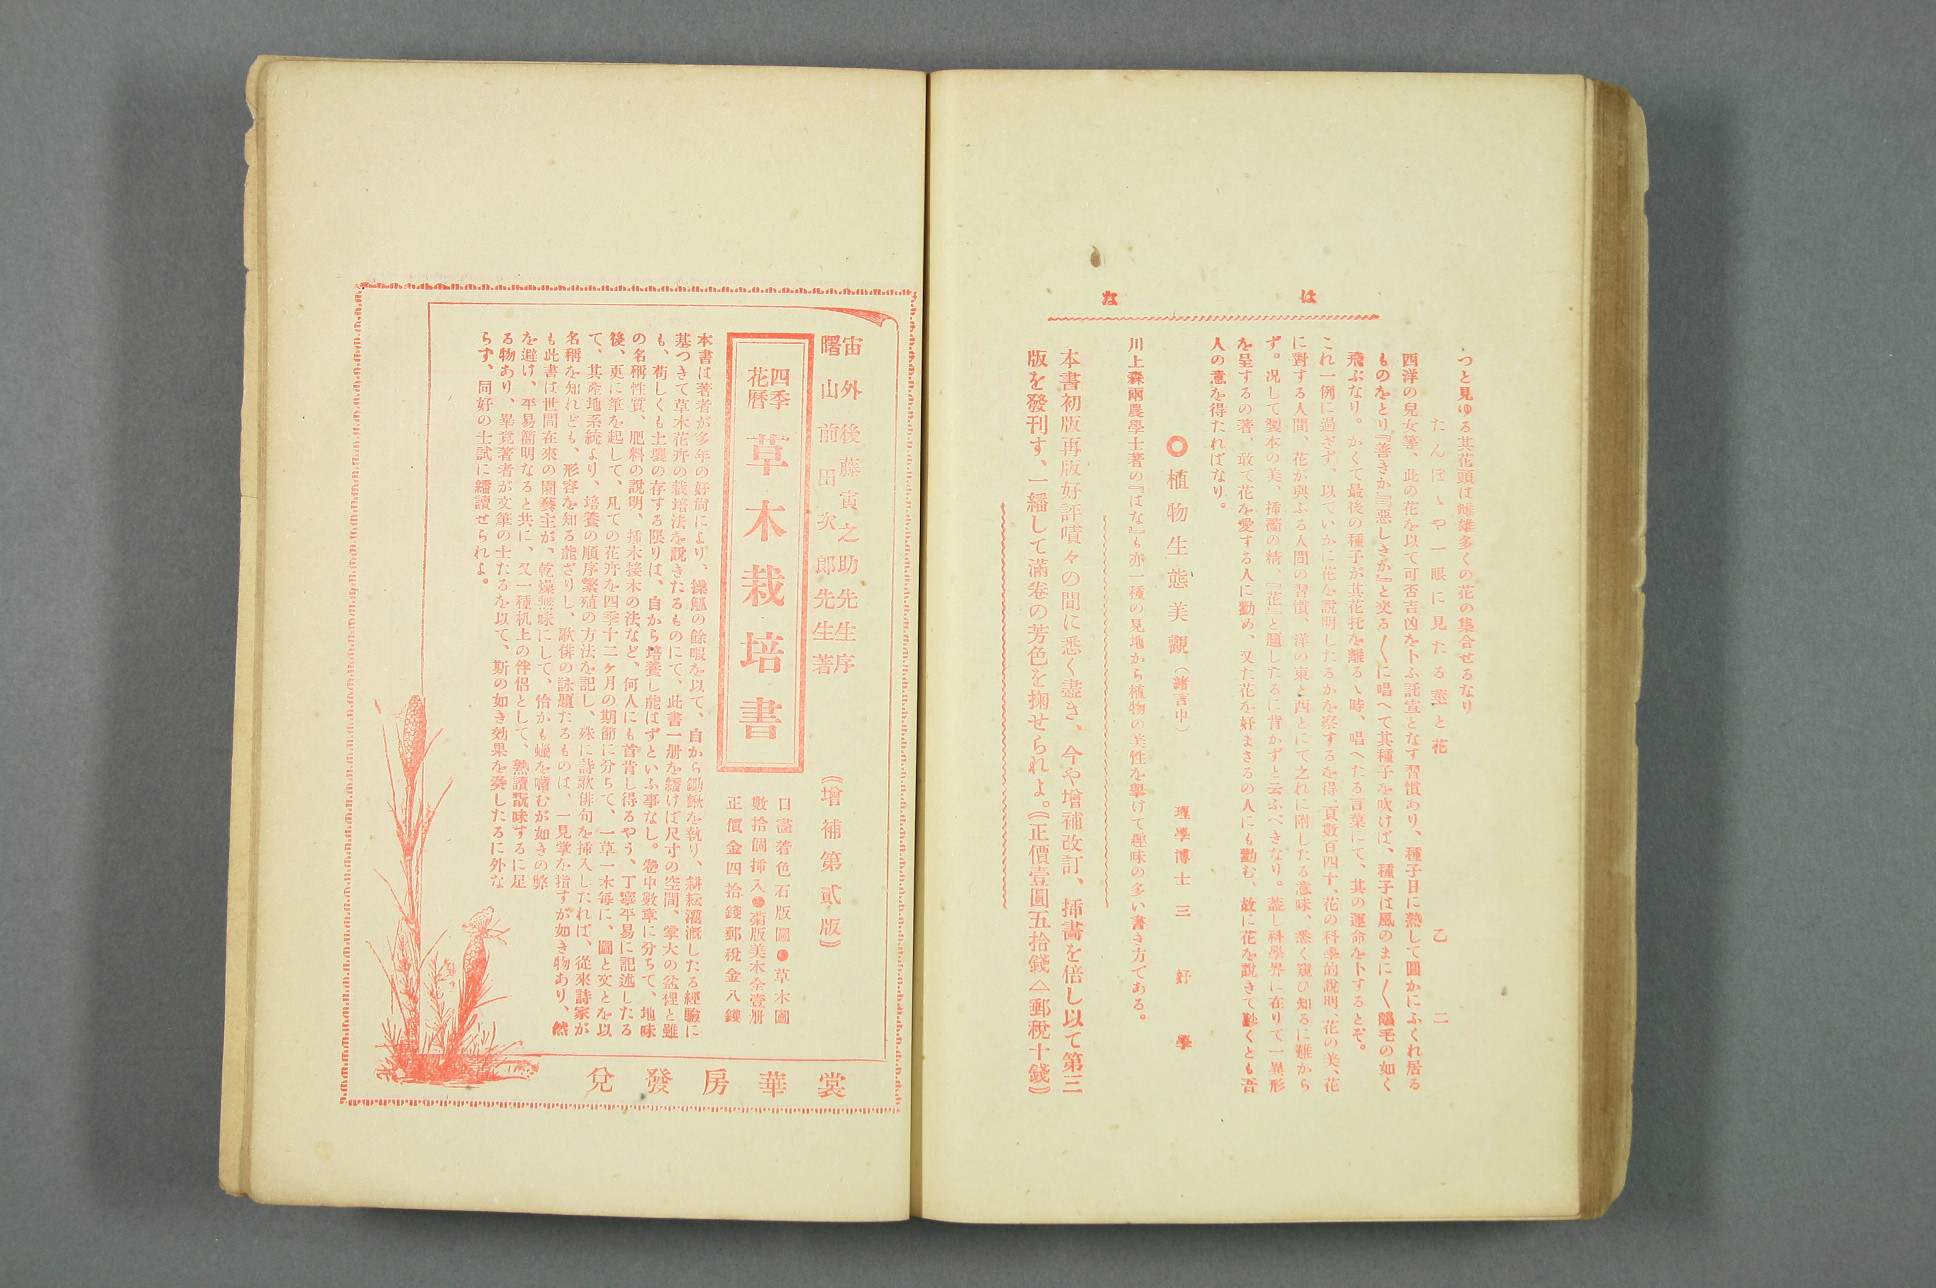 はな
つと見ゆる其花頭は雌雄多くの花の集合せるなり
たんぽゝや一眼に見たる莖と花 乙二
西洋の兒女等、此の花を以て可否吉凶を卜ふ託宣となす習慣あり、種子日に熟して圓かにふくれ居る
ものをとり『善きか』『惡しきか』と交る〱に唱へて其種子を吹けば、種子は風のまに〱陽毛の如く
飛ぶなり。かくて最後の種子が其花托を離るゝ時、唱へたる言葉にて、其の運命を卜するとぞ。
これ一例に過ぎず、以ていかに花を說明したるかを察するを得、頁數百四十、花の科學的說明、花の美、花
に對する人間、花が與ふる人間の習慣、洋の東と西とにて之れに附したる意味、悉く窺ひ知るに難から
ず。况して製本の美、挿畵の精、『花』と題したるに背かずと云ふべきなり。蓋し科學界に在りて一異形
を呈するの著、敢て花を愛する人に勸め、又た花を好まさるの人にも勸む、故に花を說きて斟くとも吾
人の意を得たればなり。
◎植物生態美觀（緖言中） 理學博士 三好學
川上森兩農學士著の『はな』も亦一種の見地から植物の美性を擧けて趣味の多い書き方である。
本書初版再版好評嘖々の間に悉く盡き、今や增補改訂、挿畵を倍し以て第三
版を發刊す、一繙して滿卷の芳色を掬せられよ。（正價壹圓五拾錢△郵稅十錢）
宙外後藤寅之助先生序
曙山前田次郎先生著
（增補第貳版）
四季花曆 草木栽培書
口畵着色石版圖●草木圖
數拾個挿入●菊版美本全壹册
正價金四拾錢郵稅金八錢
本書は著者が多年の好尙により、操觚の餘暇を以て、自から鋤鍬を執り、耕耘灌漑したる經驗に
基つきて草木花卉の栽培法を說きたるものにて、此書一册を繙けば尺寸の空間、掌大の盆裡と雖
も、苟しくも土壤の存する限りは、自から培養し能はずといふ事なし。卷中數章に分ちて、地味
の名稱性質、肥料の說明、挿木接木の法など、何人にも首肯し得るやう、丁寧平易に記述したる
後、更に筆を起して、凡ての花卉を四季十二ヶ月の期節に分ちて、一草一木每に、圖と文とを以
て、其產地系統より、培養の順序繁殖の方法を記し、殊に詩歌俳句を挿入したれば、從來詩家が
名稱を知れども、形容を知る能ざりし、歌俳の詠題たるものは、一見掌を指すが如き物あり、然
も此書は世間在來の園藝主が、乾燥無味にして、恰かも蠟を嚼むが如きの弊
を避け、平易簡明なると共に、又一種机上の伴侶として、熟讀翫味するに足
る物あり、畢竟著者が文筆の士たるを以て、斯の如き効果を奏したるに外な
らす、同好の士試に繙讀ぜられよ。
裳華房發兌